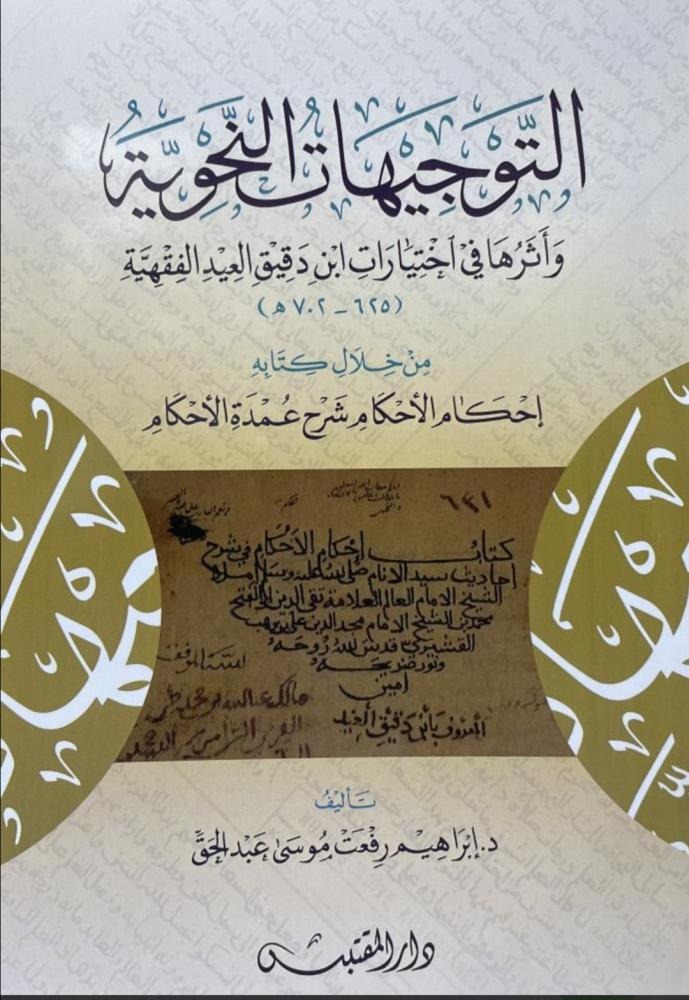 التَّوْجِيهَاتُ النَّحْوِيَّةُ
وَأَثَرُهَا فِي اخْتِيَارَاتِ ابْنِ دَقِيقِ العِيدِ الفِقْهِيَّةِ
(٦٢٥ - ٧٠٢ هـ)
مِنْ خِلَالِ كِتَابِهِ
إِحْكَامِ الأَحْكَامِ شَرْحِ عُمْدَةِ الأَحْكَامِ
٦٣١
كتاب إحكام الأحكام في شرح
احاديث سيد الانام صلى الله عليه وسلم املاه
الشيخ الامام العالم العلامة تقي الدين ابي الفتح
محمد بن الشيخ الامام مجد الدين علي بن وهب
القشيري قدس الله روحه
ونور ضريحه
امين
المعروف بابن دقيق العيد
تَأْلِيفُ
د. إِبْرَاهِيم رِفْعَتْ مُوسَى عَبْدُ الحَقِّ
دار المقتبس